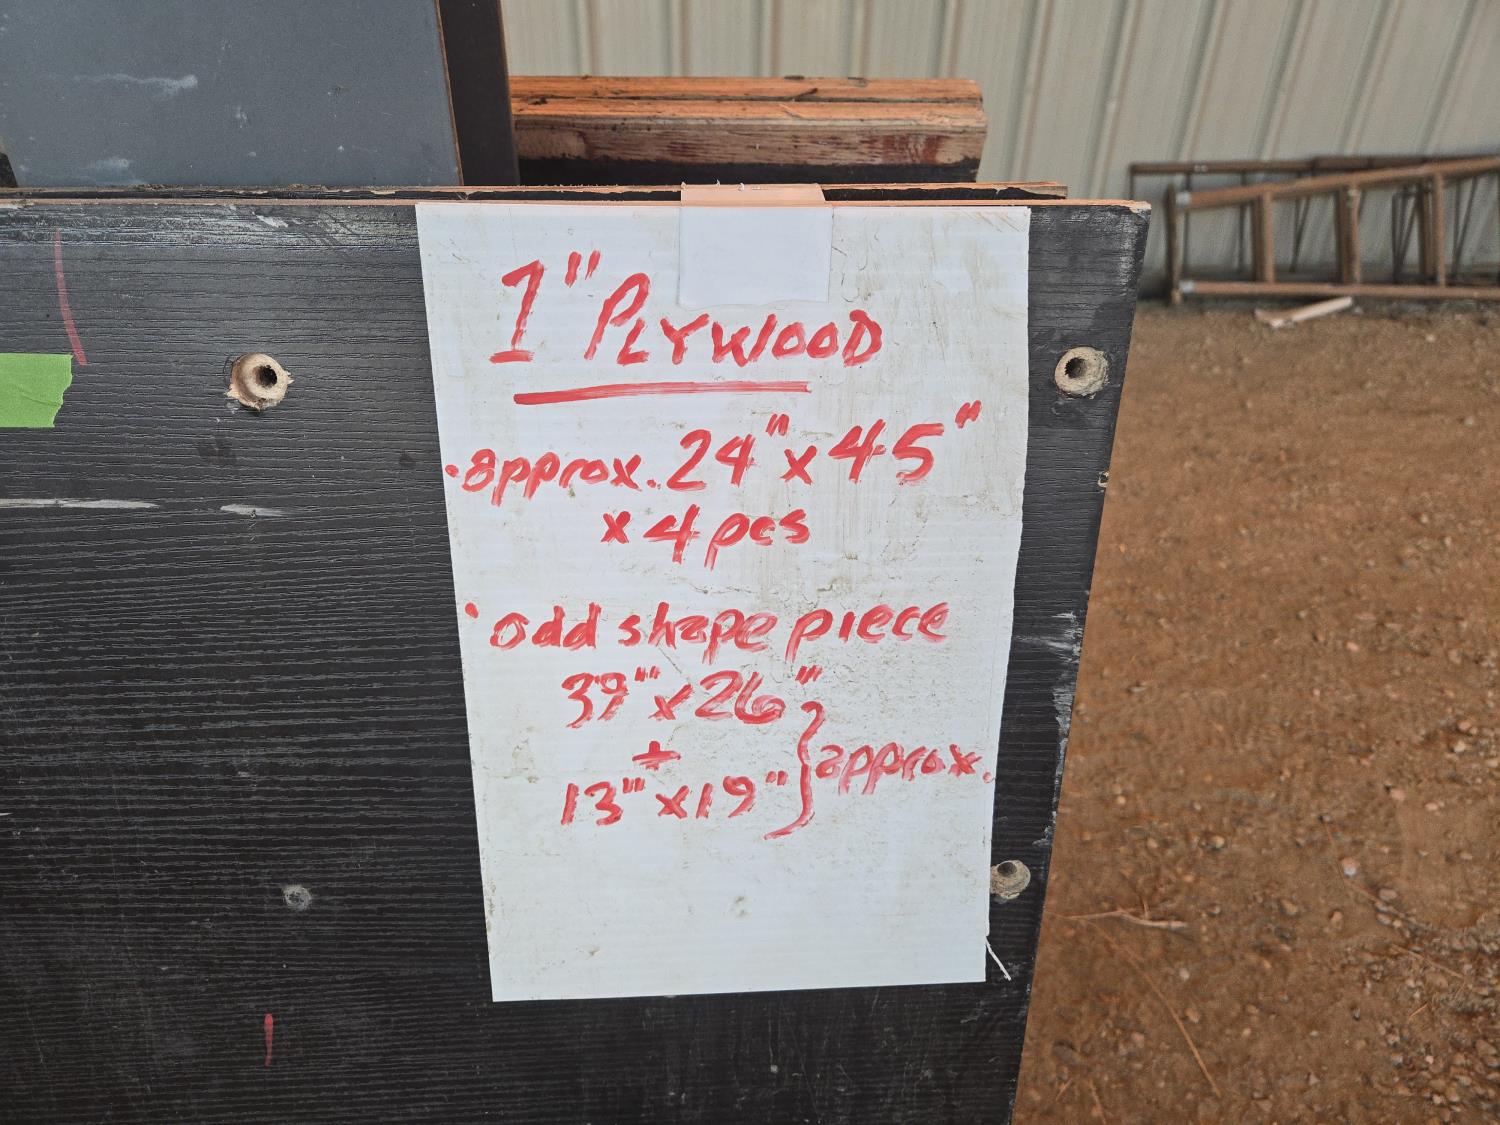 1" PLYWOOD
• approx. 24" x 45"
x 4 pcs
• odd shape piece
39" x 26"
+
13" x 19" } approx.